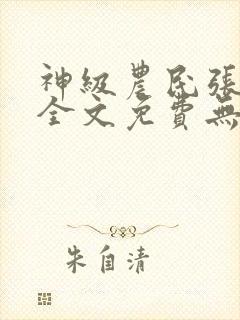 神級農民張
全文免費無
朱自清